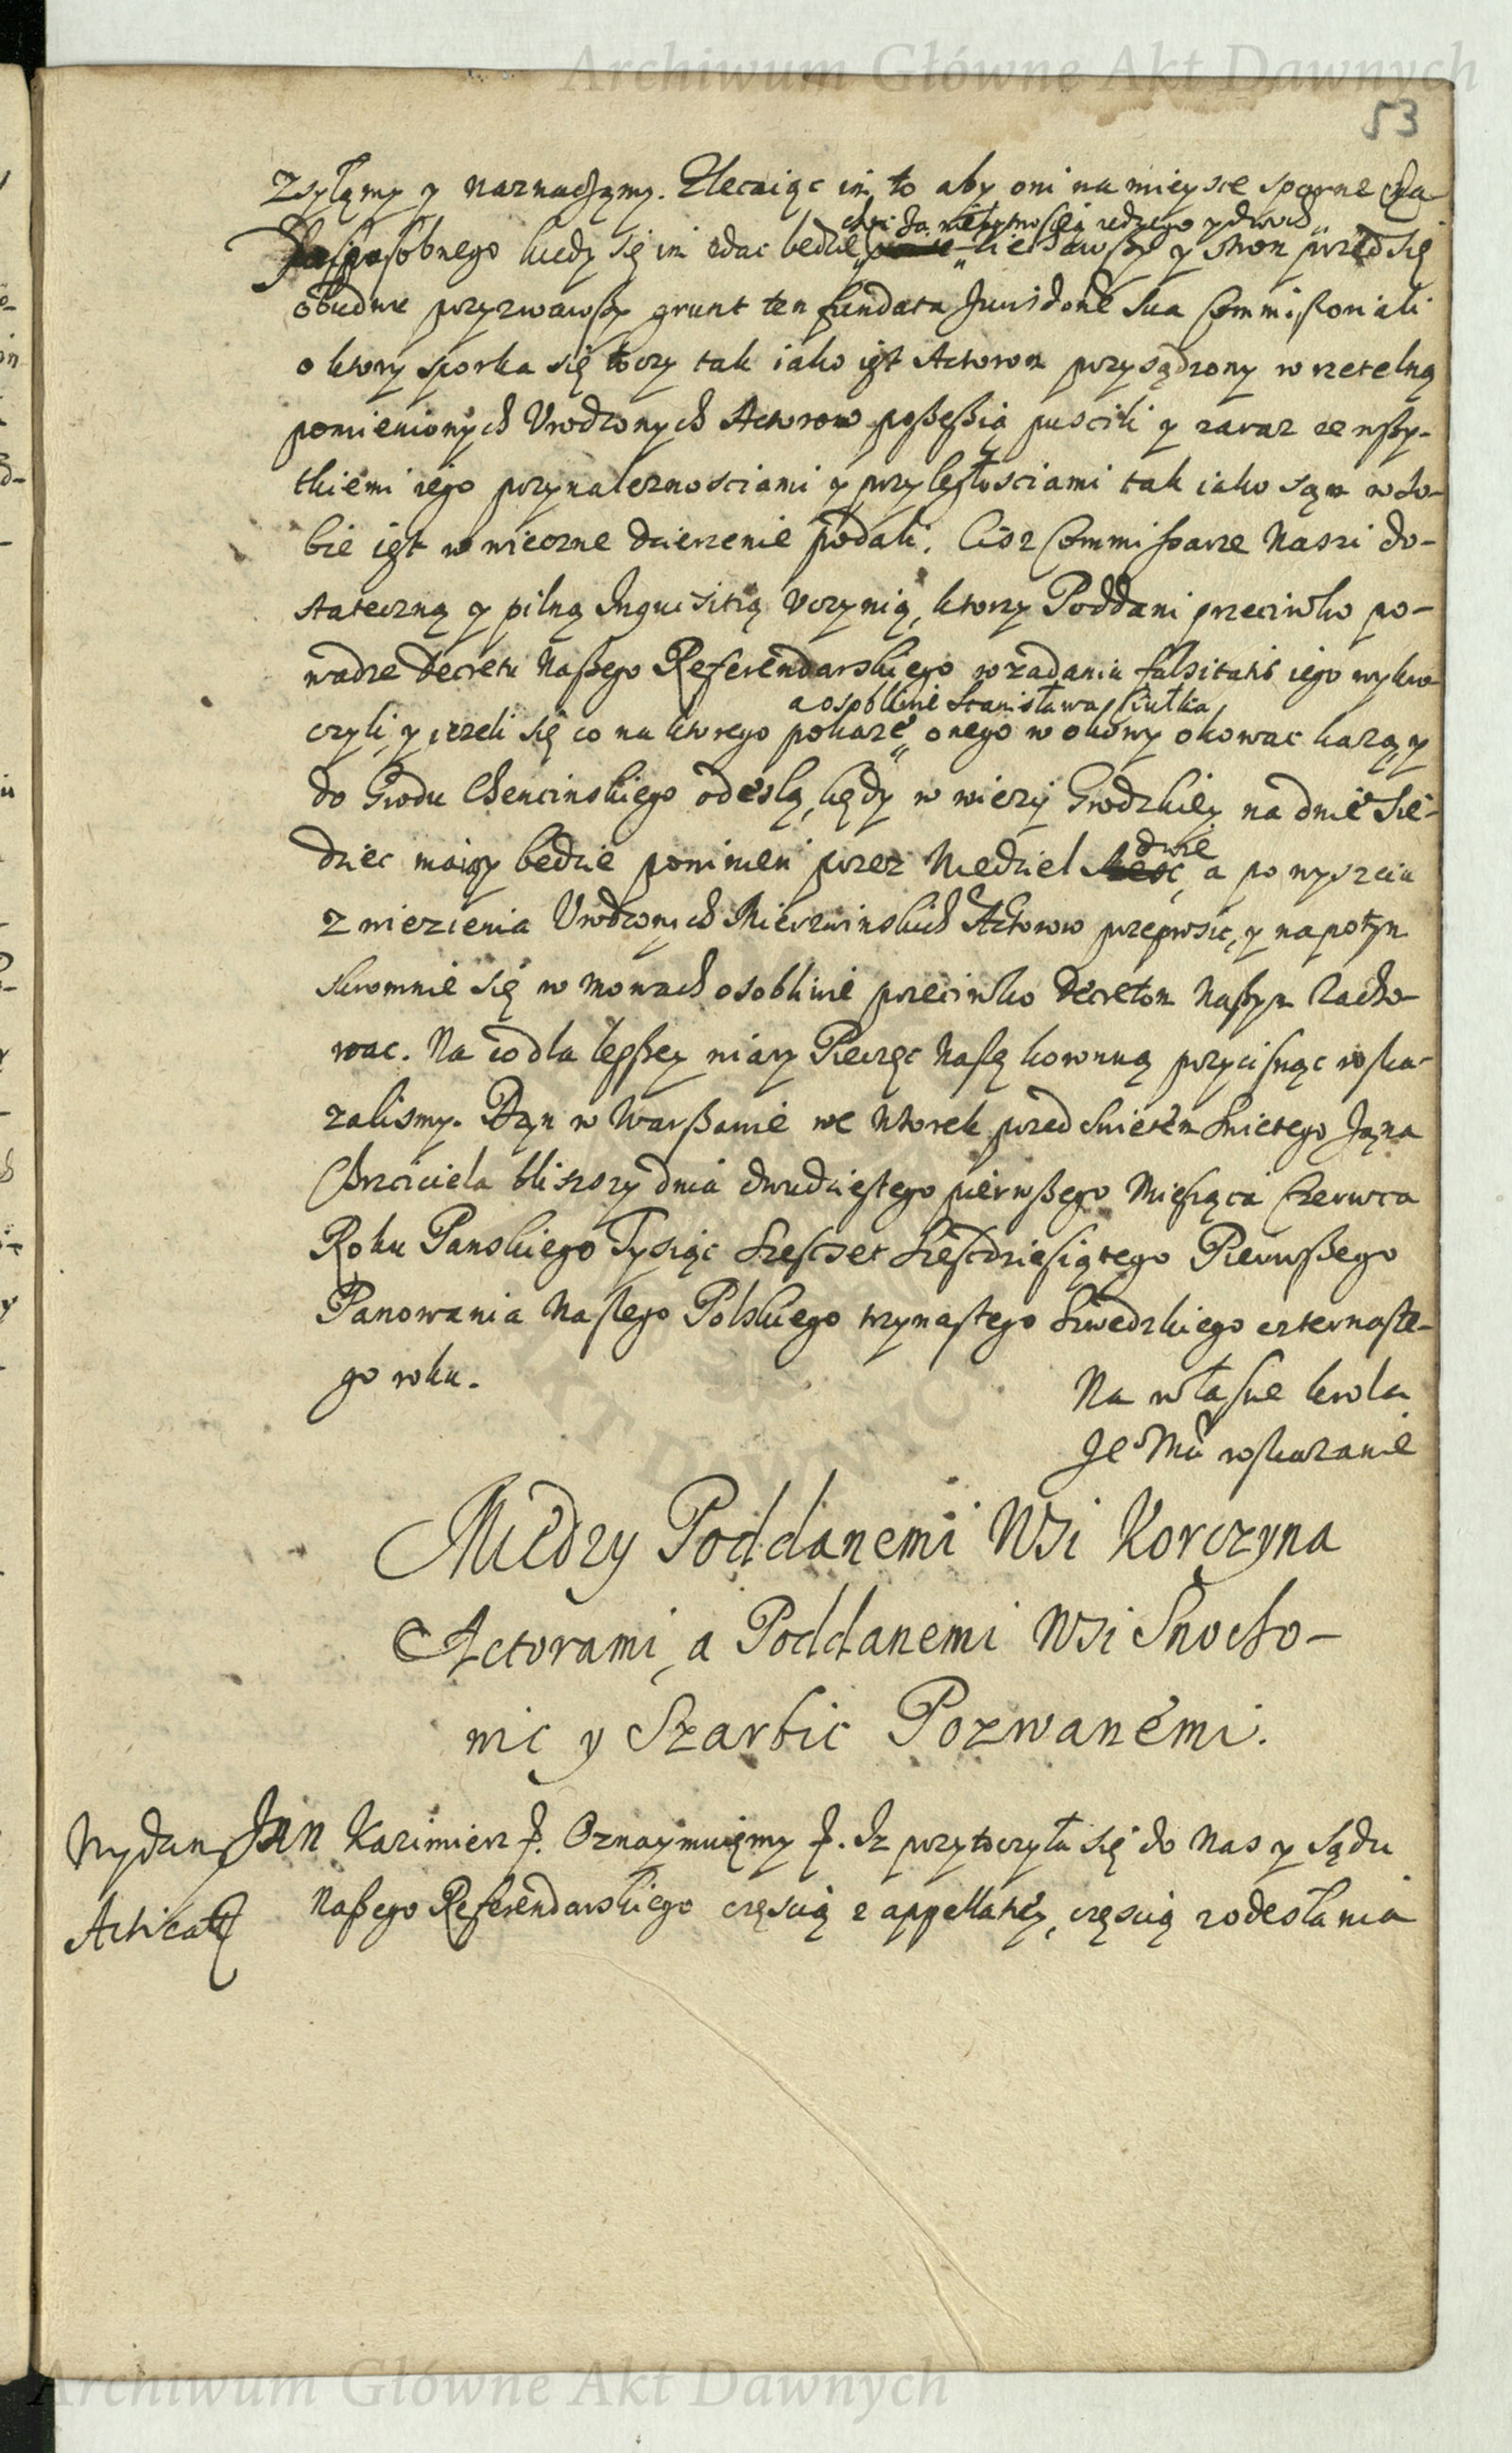 Archiwum Główne Akt Dawnych
53
Zsyłamy y naznaczamy. Zlecaiąc im to aby oni na mieysce sporne cza-
su sposobnego kiedy się im zdac będzie choc za niebytnoscią iednego y dwoch ziechawszy y stron przed się
obudwu przyzwawszy grunt ten fundata Jurisdone sua Commissoriali
o ktory sporka się toczy tak iako iest Actorom przysądzony w rzetelną
pomienionych Vrodzonych Actorow possessią puscili y zaraz ze wszy-
tkiemi iego przynaleznosciami y przyległosciami tak iako sąm w so-
bie iest w wieczne dzierzenie podali. Cisz Commissarze Naszi do-
stateczną y pilną Inquisitią vczynią, ktorzy Poddani przeciwko po-
wadze Decretu Naszego Referendarskiego w zadaniu falsitatis iego wykro-
czyli, y iezeli się co na ktorego pokaze a osobliwie Stanisława Ziułka, onego w okowy okowac kazą y
do Grodu Chencinskiego odeslą, kędy w wiezy Grodzkiey na dnie sie-
dziec maiąy będzie powinien przez Niedziel szesc dwie, a po wyszciu
z wiezienia Vrodzonych Mierzwinskich Actorow przeprosic, y napotym
skromnie się w mowach osobliwie przeciwko Decretom Naszym zacho-
wac. Na co dla lepszey wiary Pieczęc Naszę koronną przycisnąc roska-
zalismy. Dan w Warszawie we Wtorek przed Swietem Swietego Jana
Chrzciciela bliszszy dnia dwudziestego pierwszego Miesiąca Czerwca
Roku Panskiego Tysiąc Szescset Szescdziesiątego Pierwszego
Panowania Naszego Polskiego trzynastego Szwedzkiego czternaste-
go roku.
Na własne krola
Je° Mci roskazanie
Miedzy Poddanemi Wsi Korczyna
Actorami, a Poddanemi Wsi Snocho-
wic y Szarbic Pozwanemi.
Wydan Jan Kazimierz &. Oznaymuięmy &. Iz przytoczyła się do Nas y sądu
Acticat Naszego Referendarskiego częscią z appellatiey, częscią z odesłania
Archiwum Główne Akt Dawnych